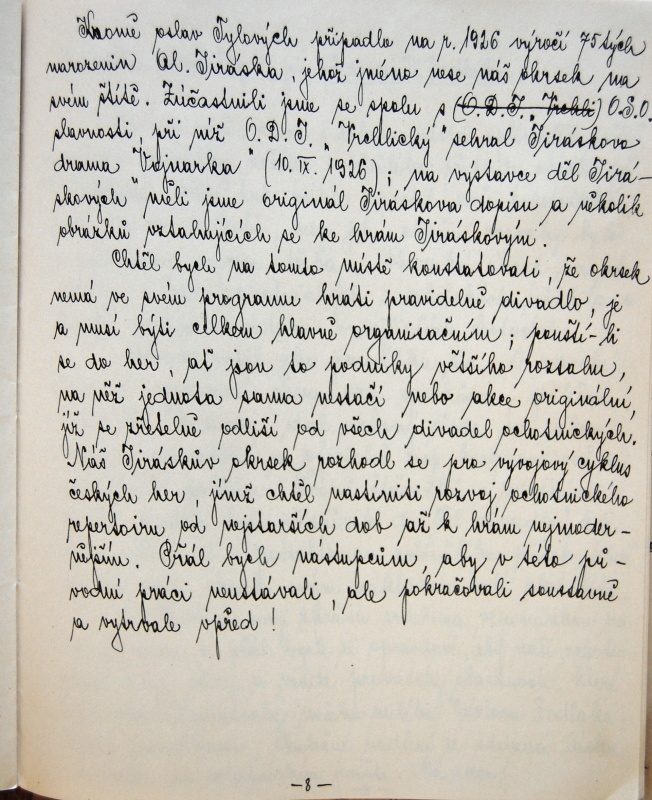 Kromě oslav Tylových připadlo na r. 1926 výročí 75tých
narozenin Al. Jiráska, jehož jméno nese náš okrsek na
svém štítě. Zúčastnili jsme se spolu s (O.D.J. „Vrchli) O.S.O.
slavnosti, při níž O.D.J. „Vrchlický" sehrál Jiráskovo
drama "Vojnarka" (10. IX. 1926); na výstavce děl Jirá-
skových" měli jsme originál Jiráskova dopisu a několik
obrázků vztahujících se ke hrám Jiráskovým.
Chtěl bych na tomto místě konstatovati, že okrsek
nemá ve svém programu hráti pravidelně divadlo, je
a musí býti celkem hlavně organisačním; pouští-li
se do her, ať jsou to podniky většího rozsahu,
na něž jednota sama nestačí nebo akce originální,
jíž se zřetelně odliší od všech divadel ochotnických.
Náš Jiráskův okrsek rozhodl se pro vývojový cyklus
českých her, jímž chtěl nastíniti rozvoj ochotnického
repertoiru od nejstarších dob až k hrám nejmoder-
nějším. Přál bych nástupcům, aby v této pů-
vodní práci neustávali, ale pokračovali soustavně
a vytrvale vpřed!
-8-